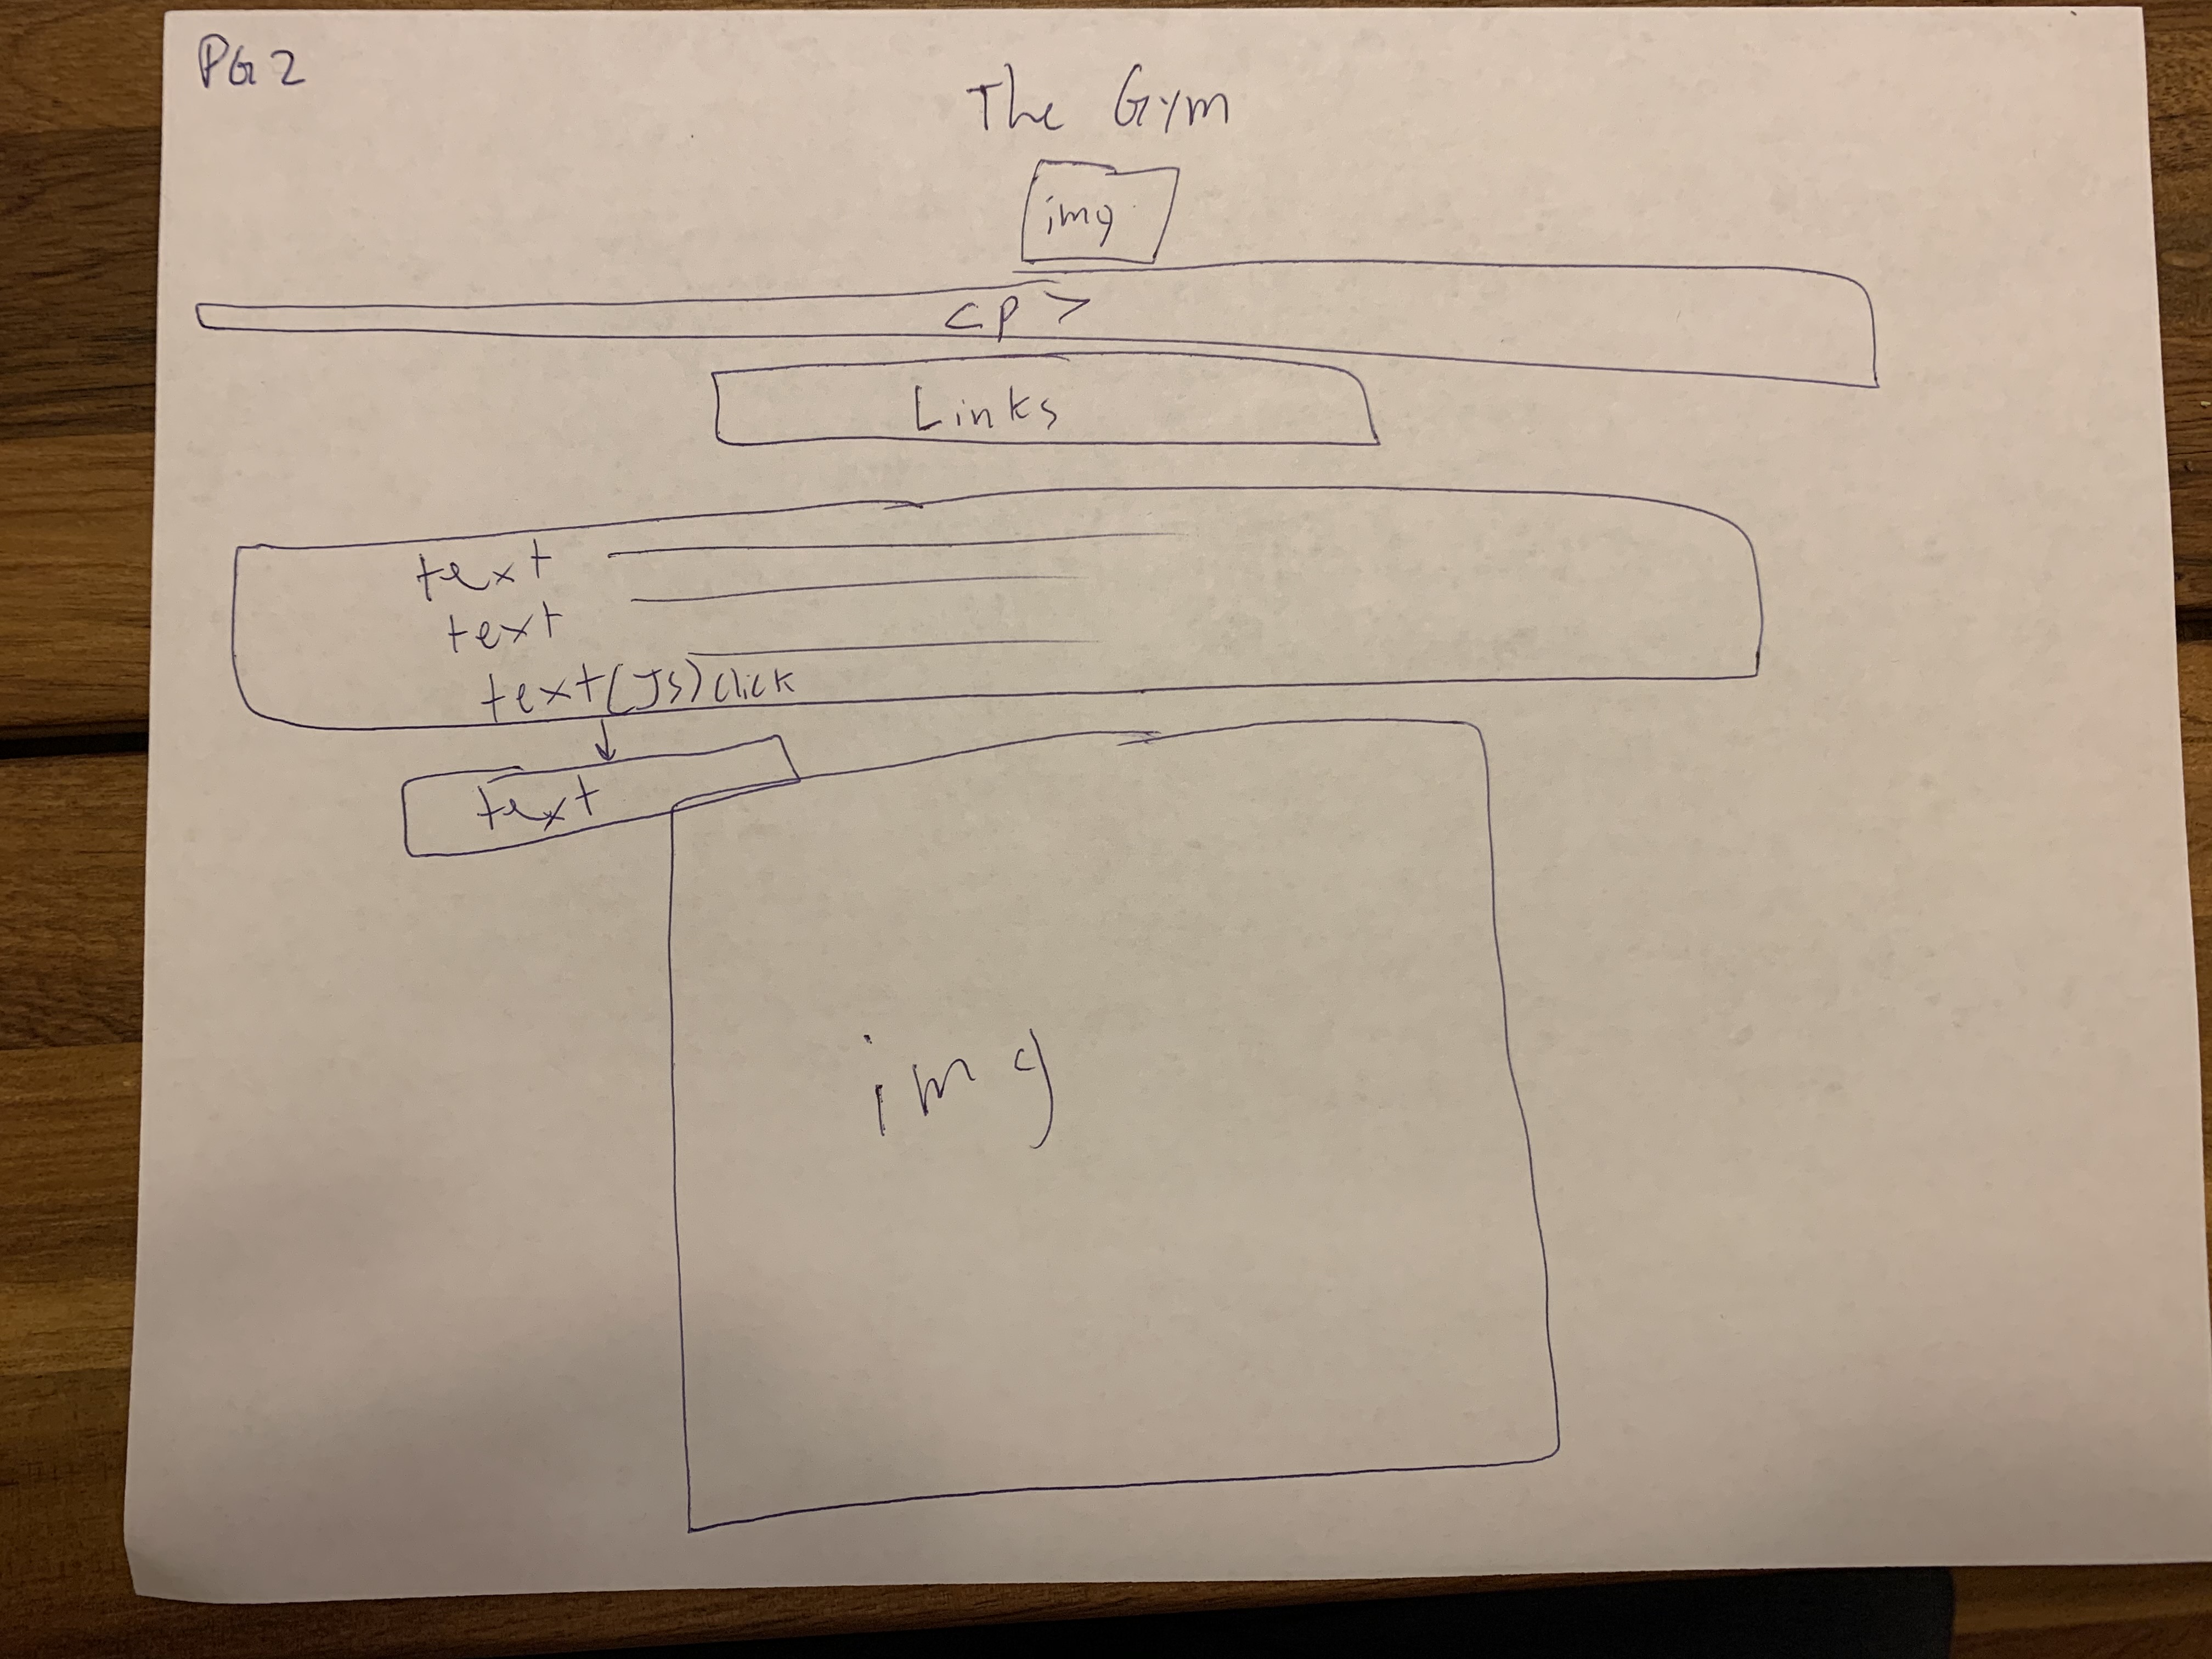 PG 2
The Gym
img
<P>
Links
text
text
text (Js) click
text
img